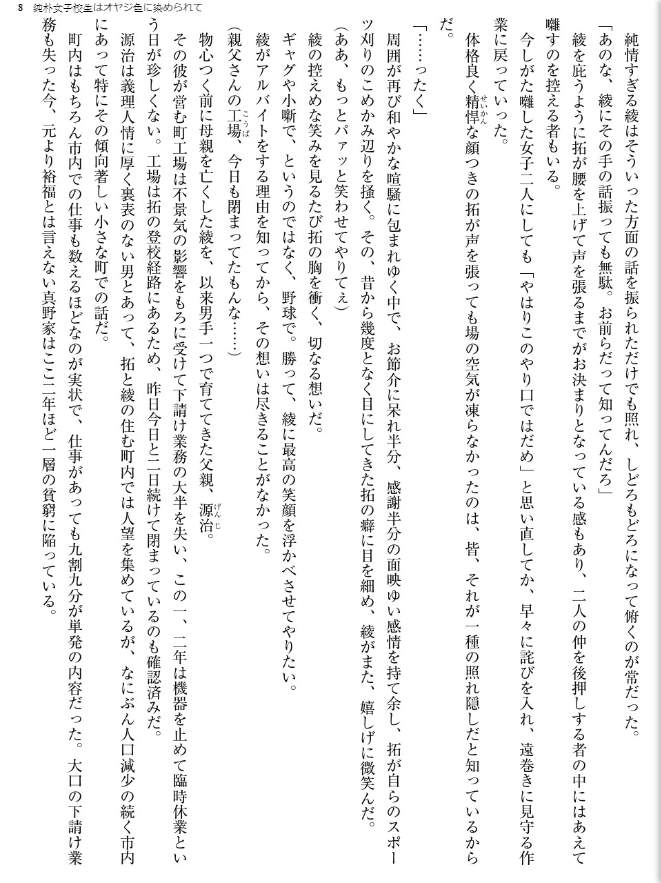 8 純朴女子校生はオヤジ色に染められて
純情すぎる綾はそういった方面の話を振られただけでも照れ、しどろもどろになって俯くのが常だった。
「あのな、綾にその手の話振っても無駄。お前らだって知ってんだろ」
綾を庇うように拓が腰を上げて声を張るまでがお決まりとなっている感もあり、二人の仲を後押しする者の中にはあえて
囃すのを控える者もいる。
今しがた囃した女子二人にしても「やはりこのやり口ではだめ」と思い直してか、早々に詫びを入れ、遠巻きに見守る作
業に戻っていった。
体格良く精悍な顔つきの拓が声を張っても場の空気が凍らなかったのは、皆、それが一種の照れ隠しだと知っているから
だ。
「……ったく」
周囲が再び和やかな喧騒に包まれゆく中で、お節介に呆れ半分、感謝半分の面映ゆい感情を持て余し、拓が自らのスポー
ツ刈りのこめかみ辺りを掻く。その、昔から幾度となく目にしてきた拓の癖に目を細め、綾がまた、嬉しげに微笑んだ。
（ああ、もっとパァッと笑わせてやりてぇ）
綾の控えめな笑みを見るたび拓の胸を衝く、切なる想いだ。
ギャグや小噺で、というのではなく、野球で。勝って、綾に最高の笑顔を浮かべさせてやりたい。
綾がアルバイトをする理由を知ってから、その想いは尽きることがなかった。
（親父さんの工場、今日も閉まってたもんな……）
物心つく前に母親を亡くした綾を、以来男手一つで育ててきた父親、源治。
その彼が営む町工場は不景気の影響をもろに受けて下請け業務の大半を失い、この一、二年は機器を止めて臨時休業とい
う日が珍しくない。工場は拓の登校経路にあるため、昨日今日と二日続けて閉まっているのも確認済みだ。
源治は義理人情に厚く裏表のない男とあって、拓と綾の住む町内では人望を集めているが、なにぶん人口減少の続く市内
にあって特にその傾向著しい小さな町での話だ。
町内はもちろん市内での仕事も数えるほどなのが実状で、仕事があっても九割九分が単発の内容だった。大口の下請け業
務も失った今、元より裕福とは言えない真野家はここ二年ほど一層の貧窮に陥っている。